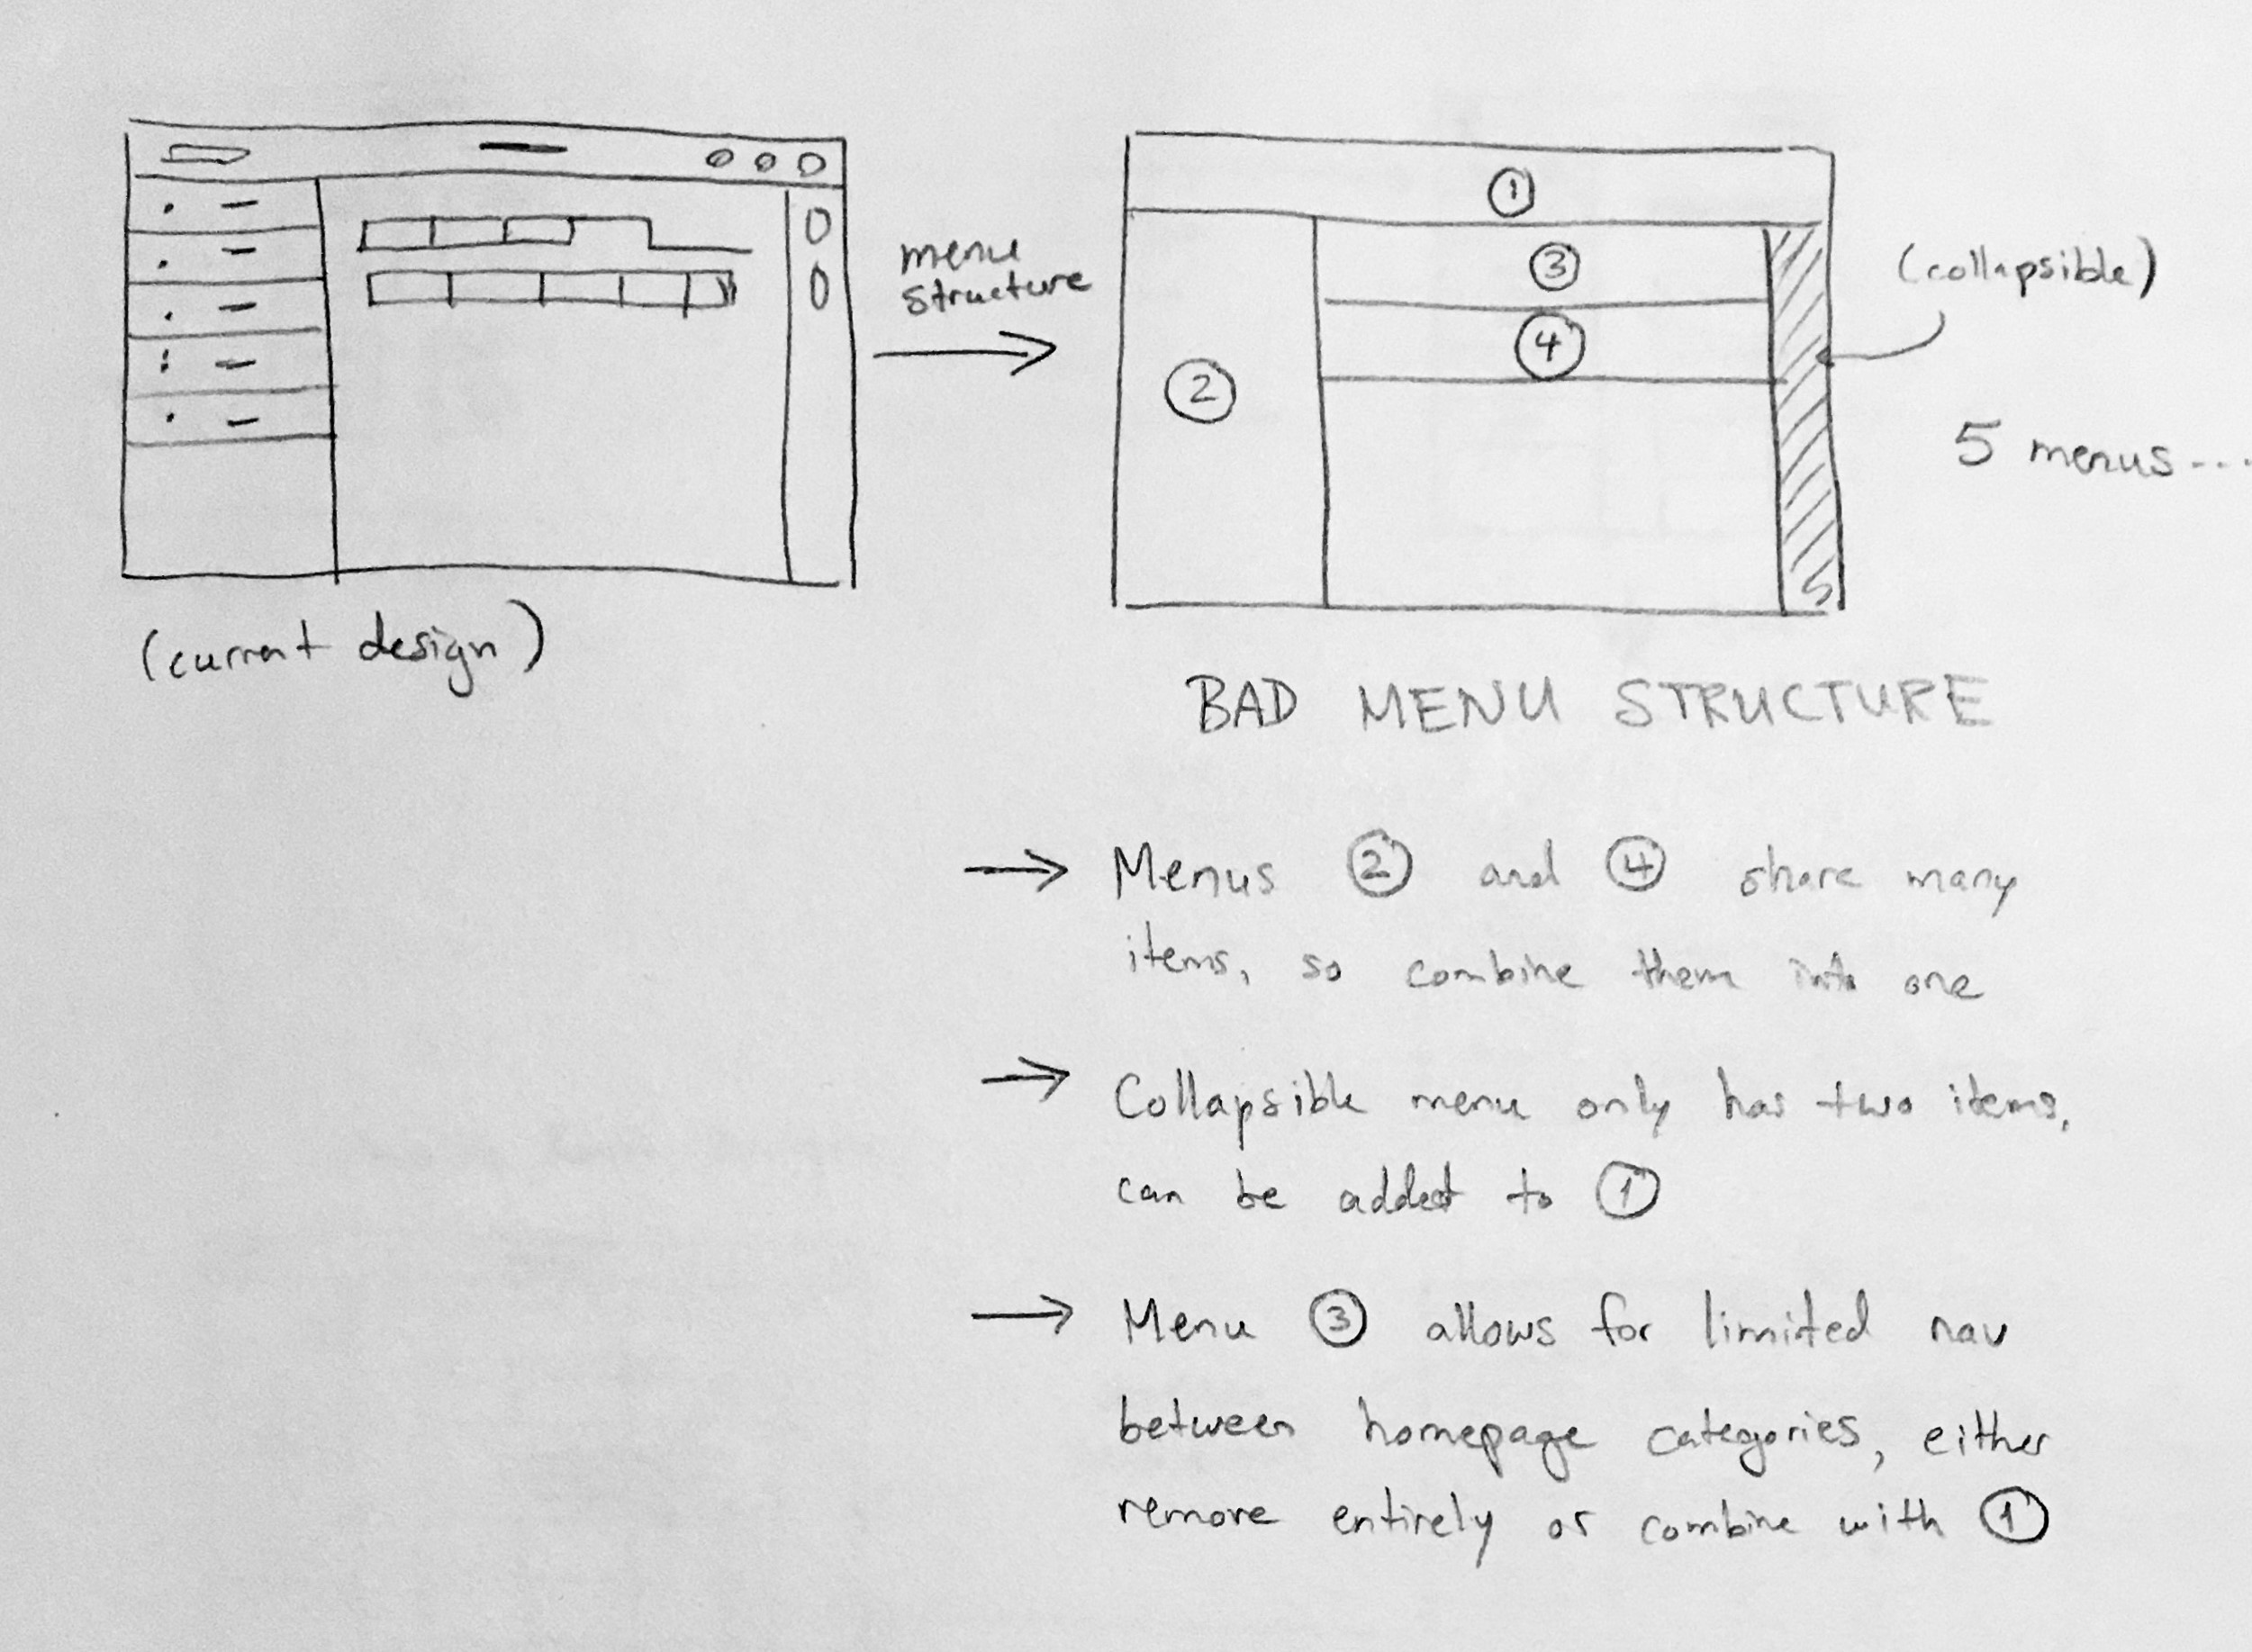 menu
structure
(current design)
①
②
③
④
(collapsible)
5 menus...
BAD MENU STRUCTURE
→ Menus ② and ④ share many
items, so combine them into one
→ Collapsible menu only has two items,
can be added to ①
→ Menu ③ allows for limited nav
between homepage categories, either
remove entirely or combine with ①